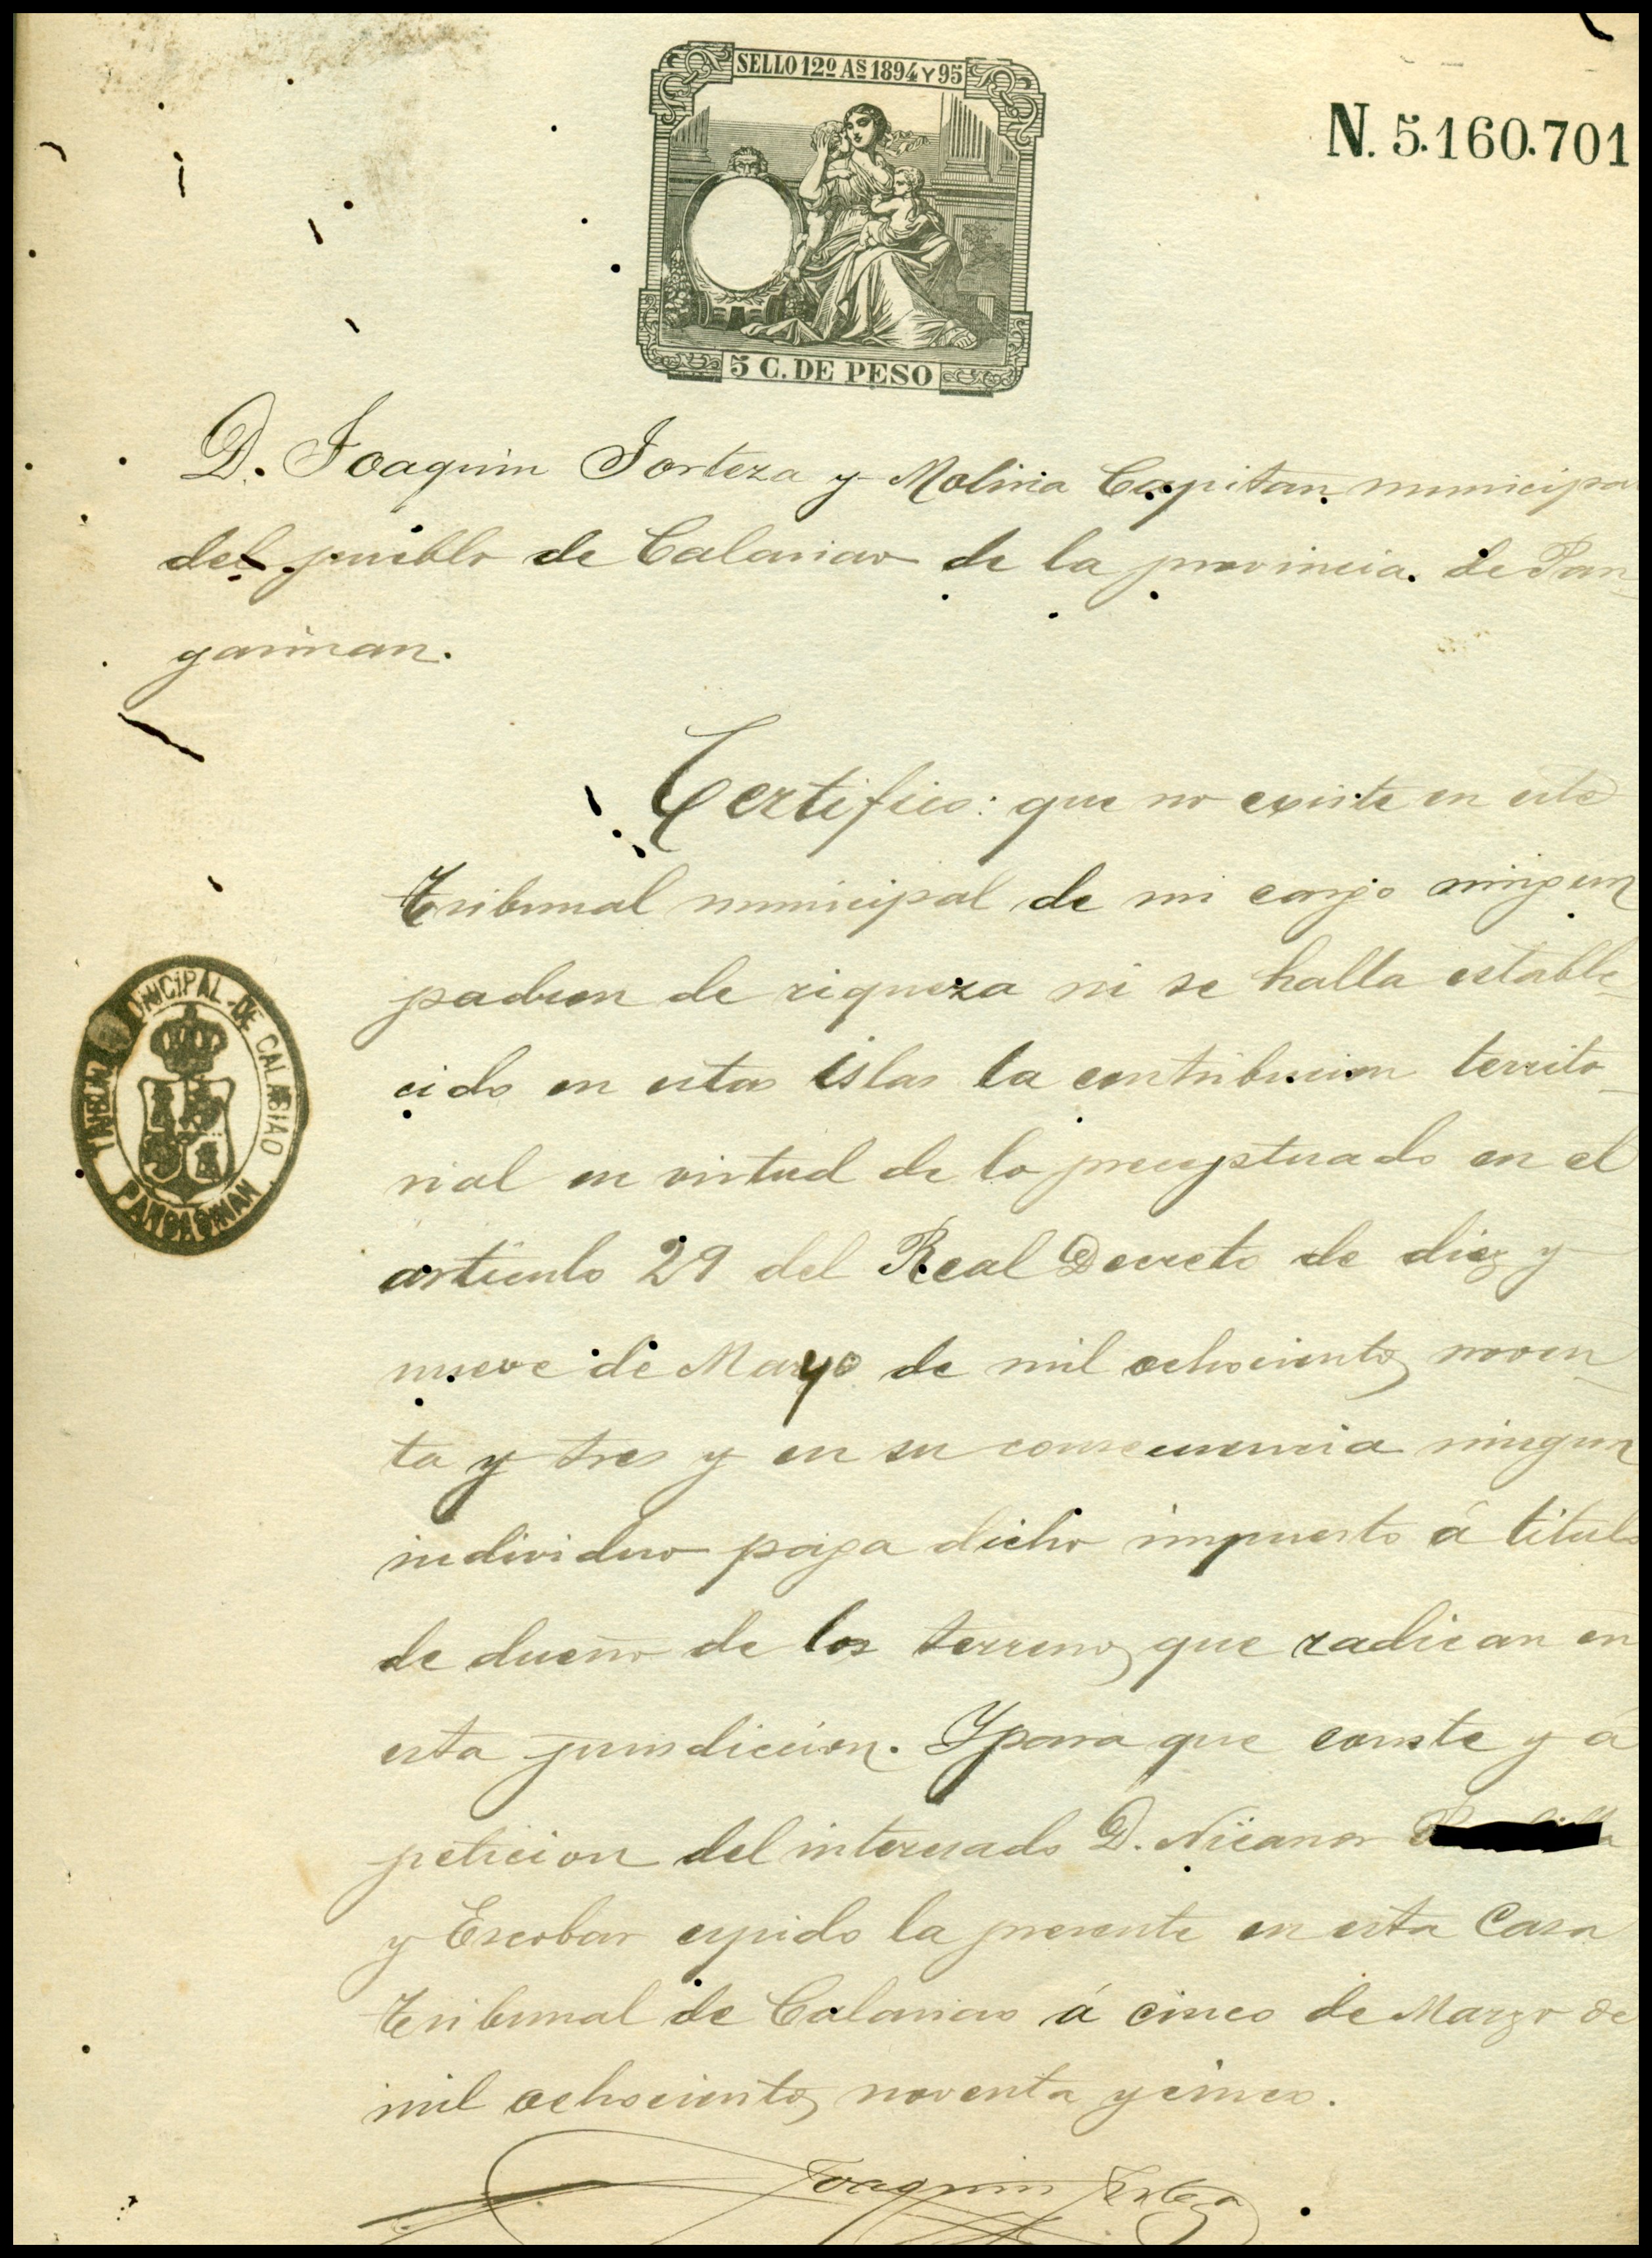 SELLO 12º Aˢ 1894 Y 95
N. 5.160.701
5 C. DE PESO
D. Joaquin Torteza y Molina Capitan municipa
del pueblo de Calasiao de la provincia de Pan
gasinan.
Certifico: que no existe en este
Tribunal municipal de mi cargo ningun
padron de riqueza ni se halla estable_
cido en estas islas la contribucion territo_
TRIBUNAL MUNICIPAL DE CALASIAO
PANGASINAN
rial en virtud de lo preceptuado en el
articulo 29 del Real Decreto de diez y
nueve de Mayo de mil ochocientos noven_
ta y tres y en su consecuencia ningun
individuo paga dicho impuesto á titulo
de dueño de los terrenos que radican en
esta jurisdiccion. Y para que conste y á
peticion del interesado D. Nicanor
y Escobar espido la presente en esta Casa
Tribunal de Calasiao á cinco de Marzo de
mil ochocientos noventa y cinco.
Joaquin Torteza